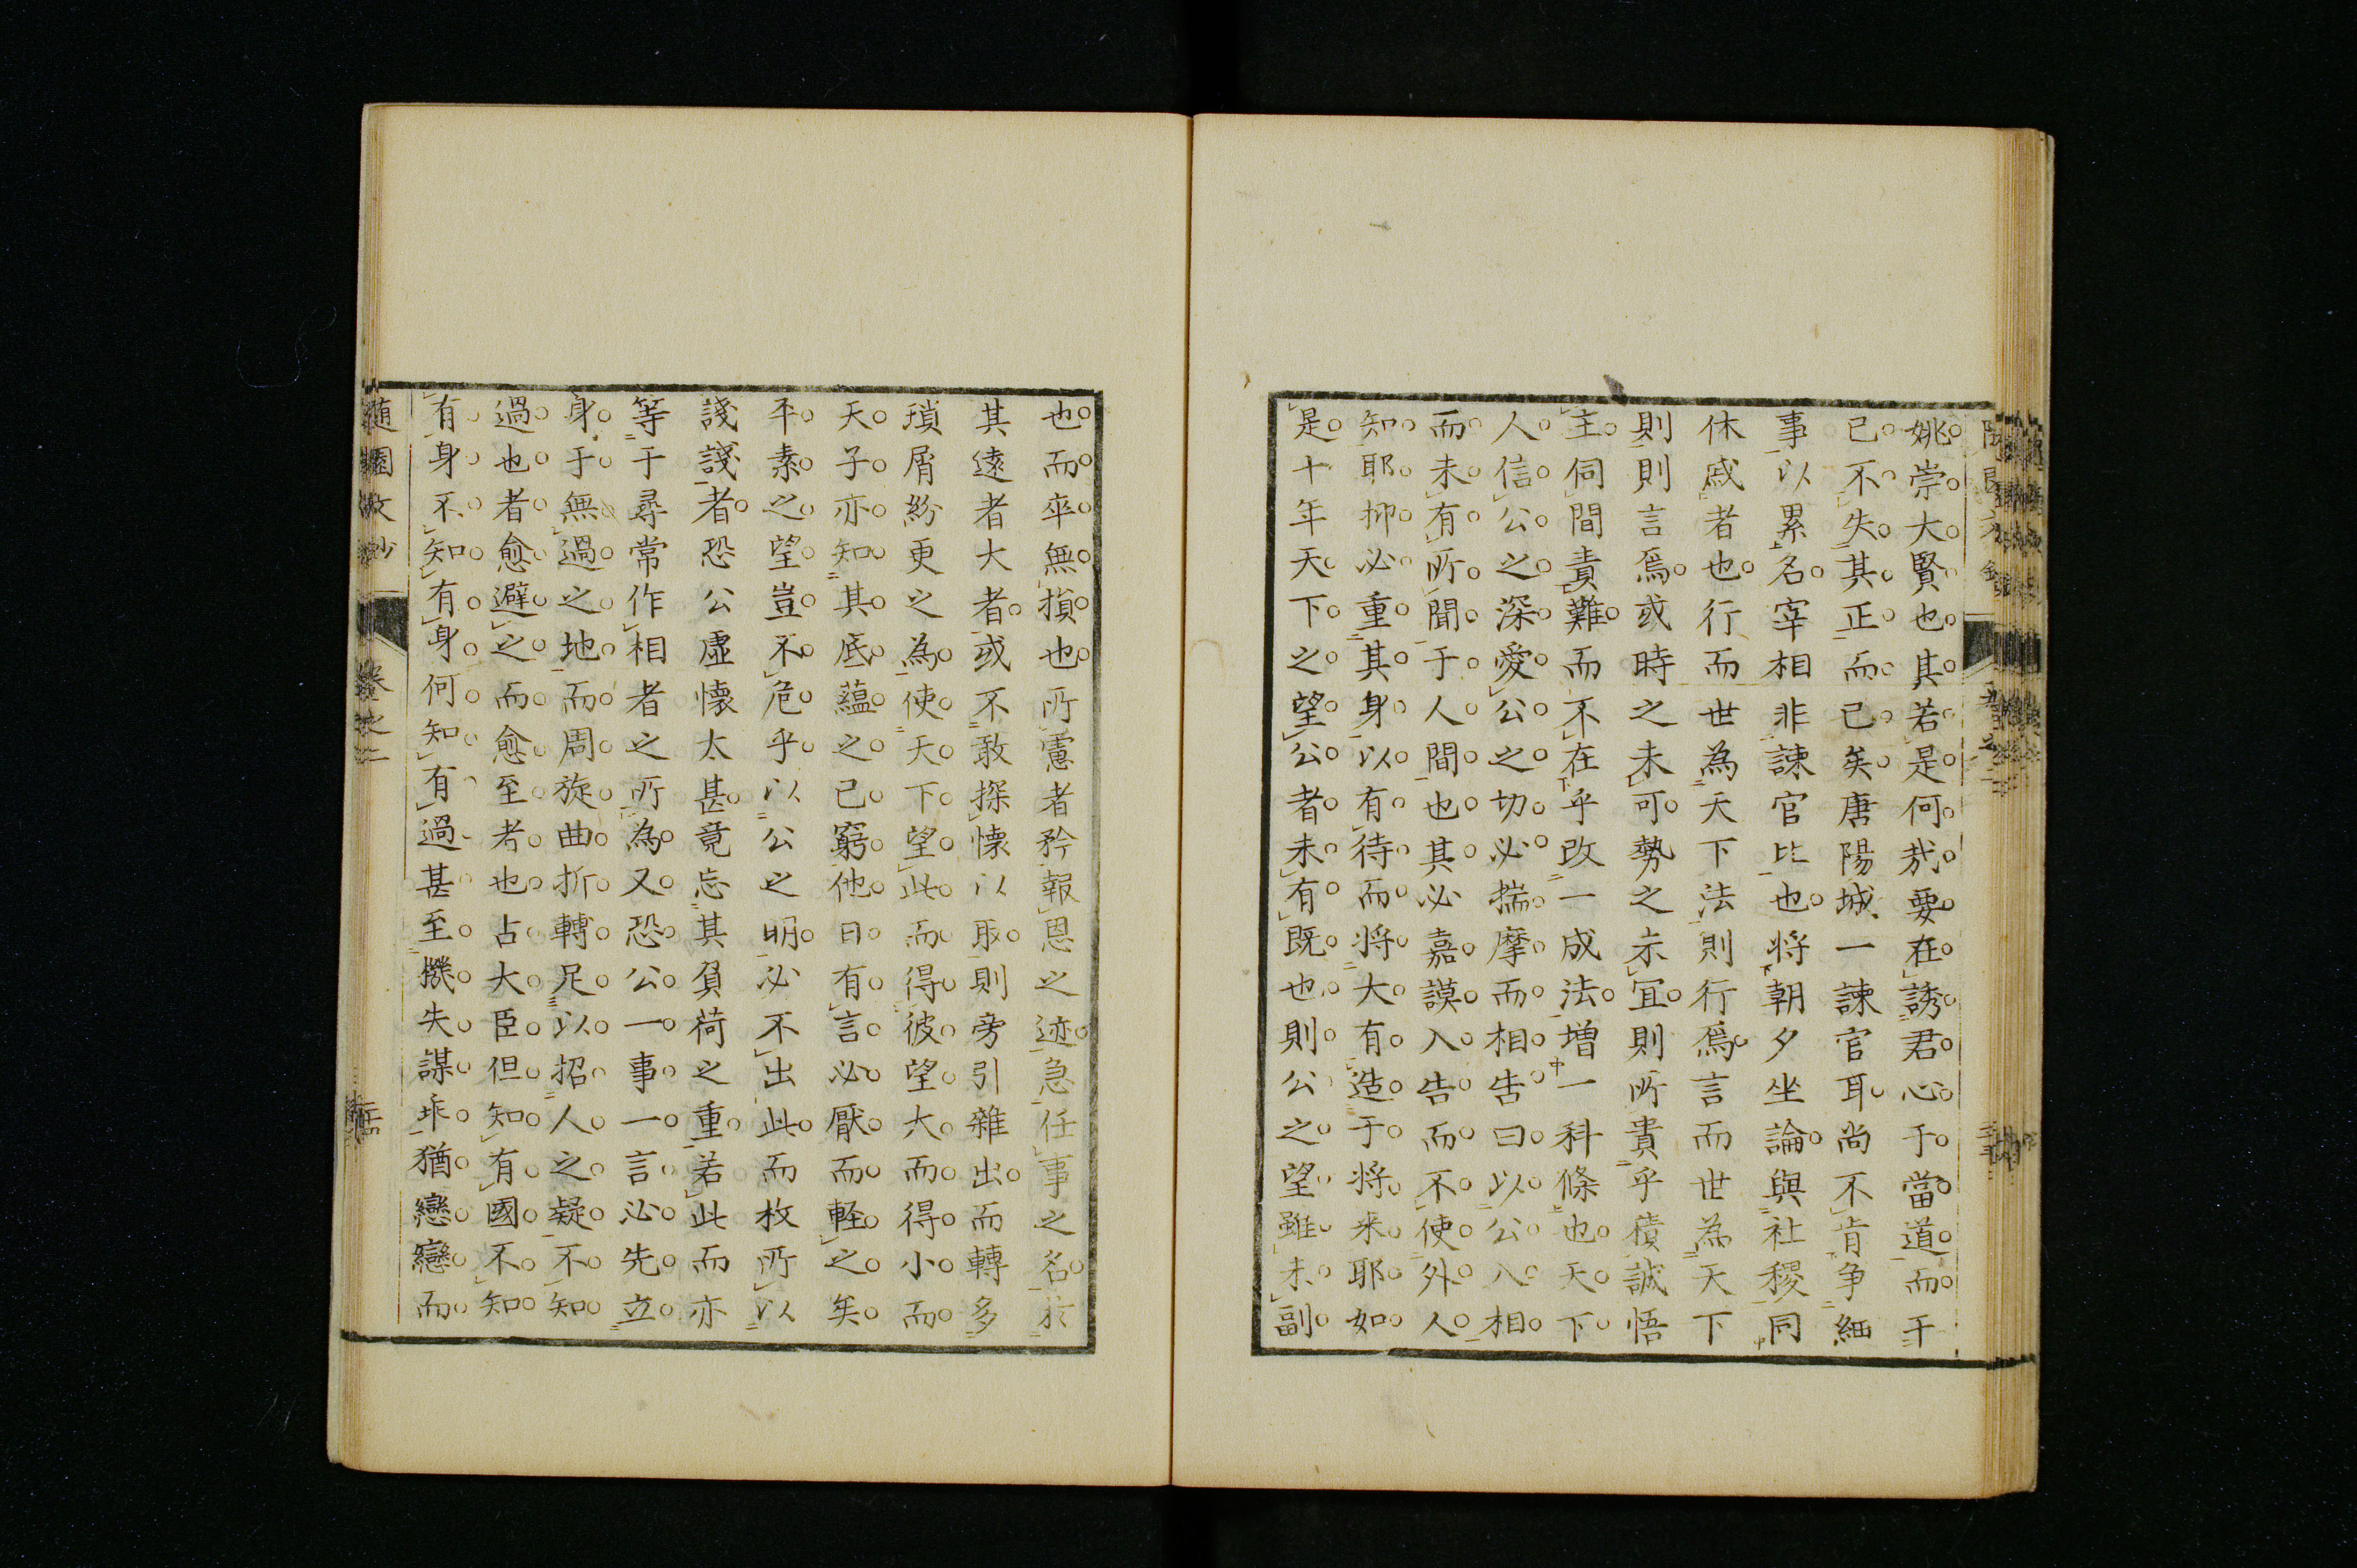 姚崇大賢也其若是何哉要在誘君心于當道而于
己不失其正而已矣唐陽城一諫官耳尚不肯争細
事以累名宰相非諫官比也将朝夕坐論與社稷同
休戚者也行而世為天下法則行焉言而世為天下
則則言焉或時之未可勢之未宜則所貴乎積誠悟
主伺間責難而不在乎改一成法増一科條也天下
人信公之深愛公之切必揣摩而相告曰以公入相
而未有所聞于人間也其必嘉謨入告而不使外人
知耶抑必重其身以有待而将大有造于将来耶如
是十年天下之望公者未有既也則公之望雖未副
也而卒無損也所慮者矜報恩之迹急任事之名於
其遠者大者或不敢探懐以取則旁引雜出而轉多
瑣屑紛更之為使天下望此而得彼望大而得小而
天子亦知其底蘊之已窮他日有言必厭而軽之矣
平素之望豈不危乎以公之明必不出此而枚所以
諓諓者恐公虚懐太甚竟忘其負荷之重若此而亦
等于尋常作相者之所為又恐公一事一言必先立
身于無過之地而周旋曲折轉足以招人之疑不知
過也者愈避之而愈至者也古大臣但知有國不知
有身不知有身何知有過甚至機失謀乖猶戀戀而
随園文鈔 巻之二